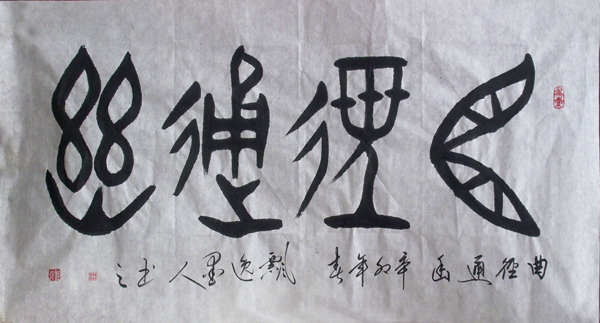 曲徑通幽
曲徑通幽 辛卯年春 飄逸墨人书之